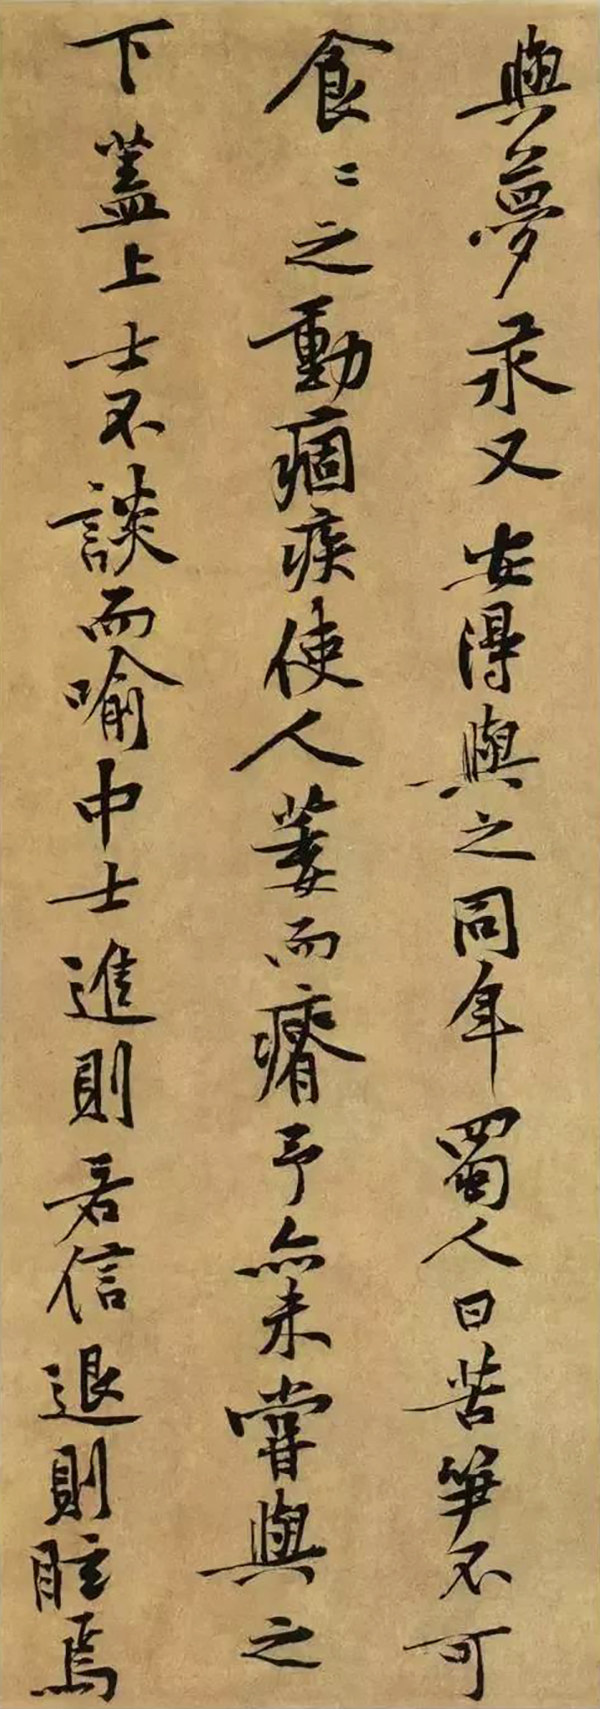 與夢汞又安得與之同年蜀人曰苦笋不可
食二之動痼疾使人萎而瘠予亦未嘗與之
下蓋上士不談而喻中士進則若信退則眩焉